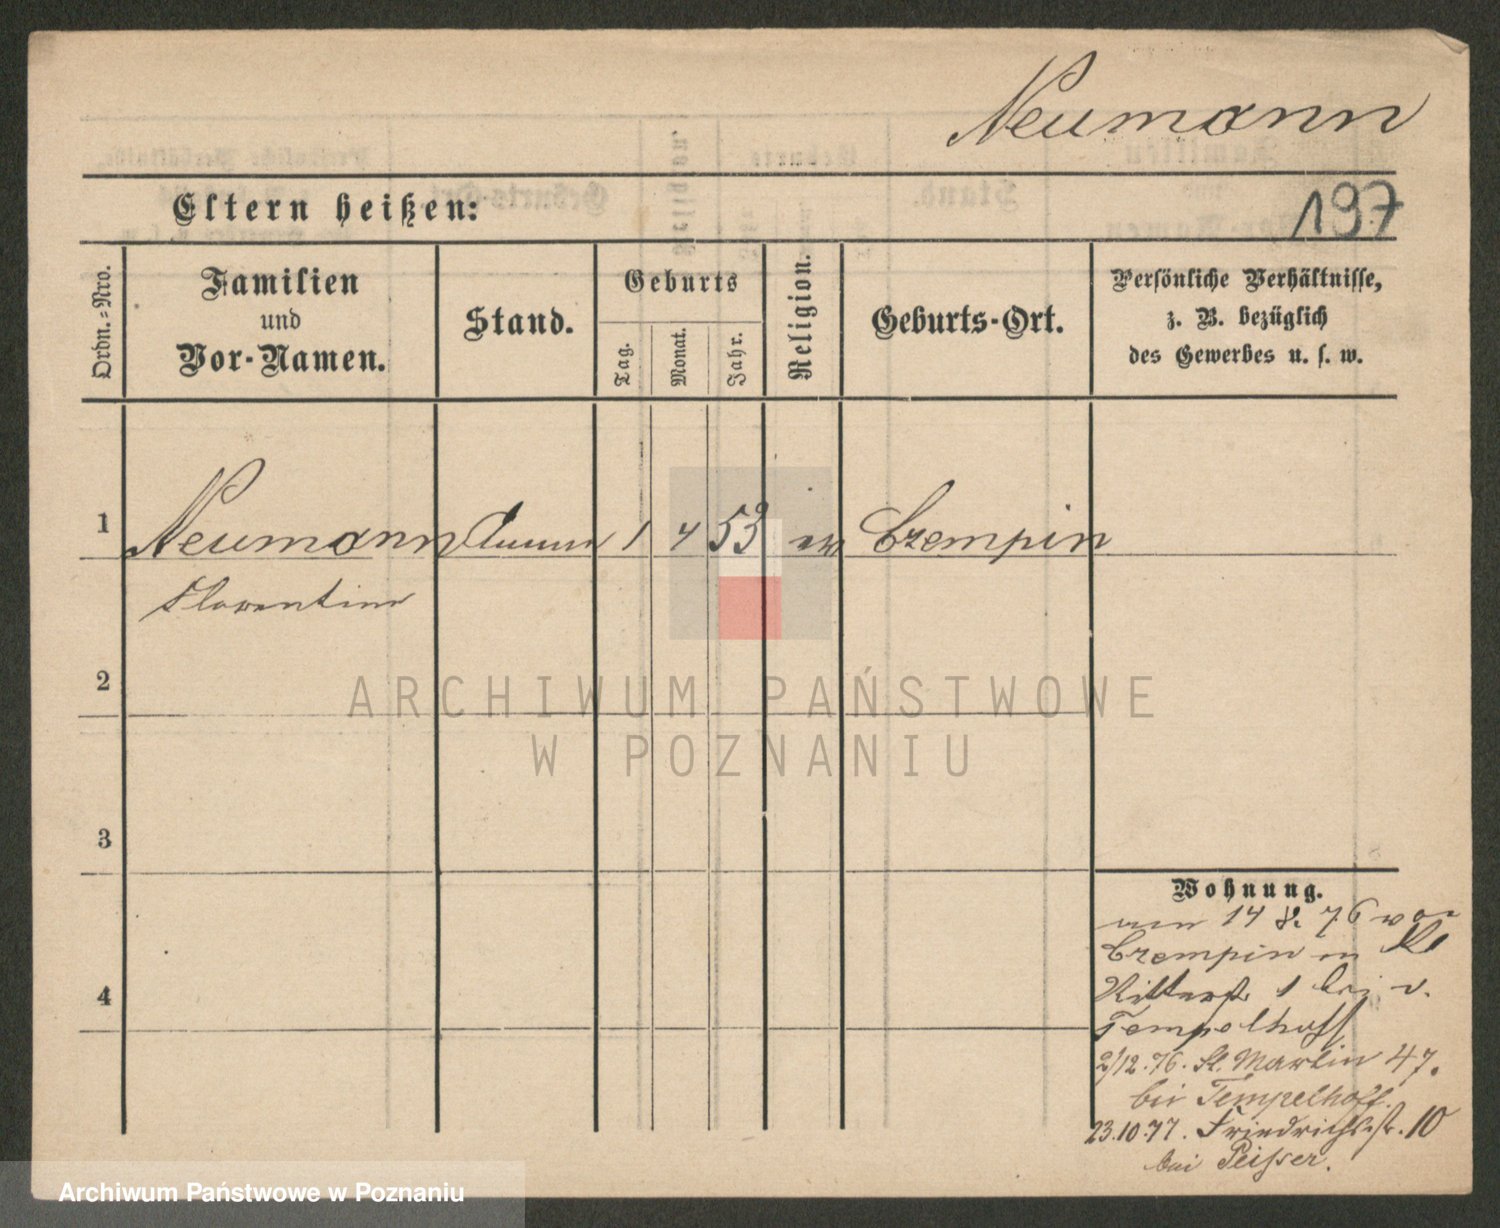 Neumann
197
Eltern heißen:
Ordn.-Nro.
Familien
und
Vor-Namen.
Stand.
Geburts
Tag.
Monat.
Jahr.
Religion.
Geburts-Ort.
Persönliche Verhältnisse,
z. B. bezüglich
des Gewerbes u. s. w.
1 Neumann 1 4 53 ev Czempin
Florentine
2
ARCHIWUM PAŃSTWOWE
W POZNANIU
3
4
Wohnung.
14 8. 76 von
Czempin in Kl
Ritterstr 1 bei v.
Tempelhoff
2/12.76. St. Martin 47.
bei Tempelhoff.
23.10.77. Friedrichsstr. 10
bei Peisser.
Archiwum Państwowe w Poznaniu